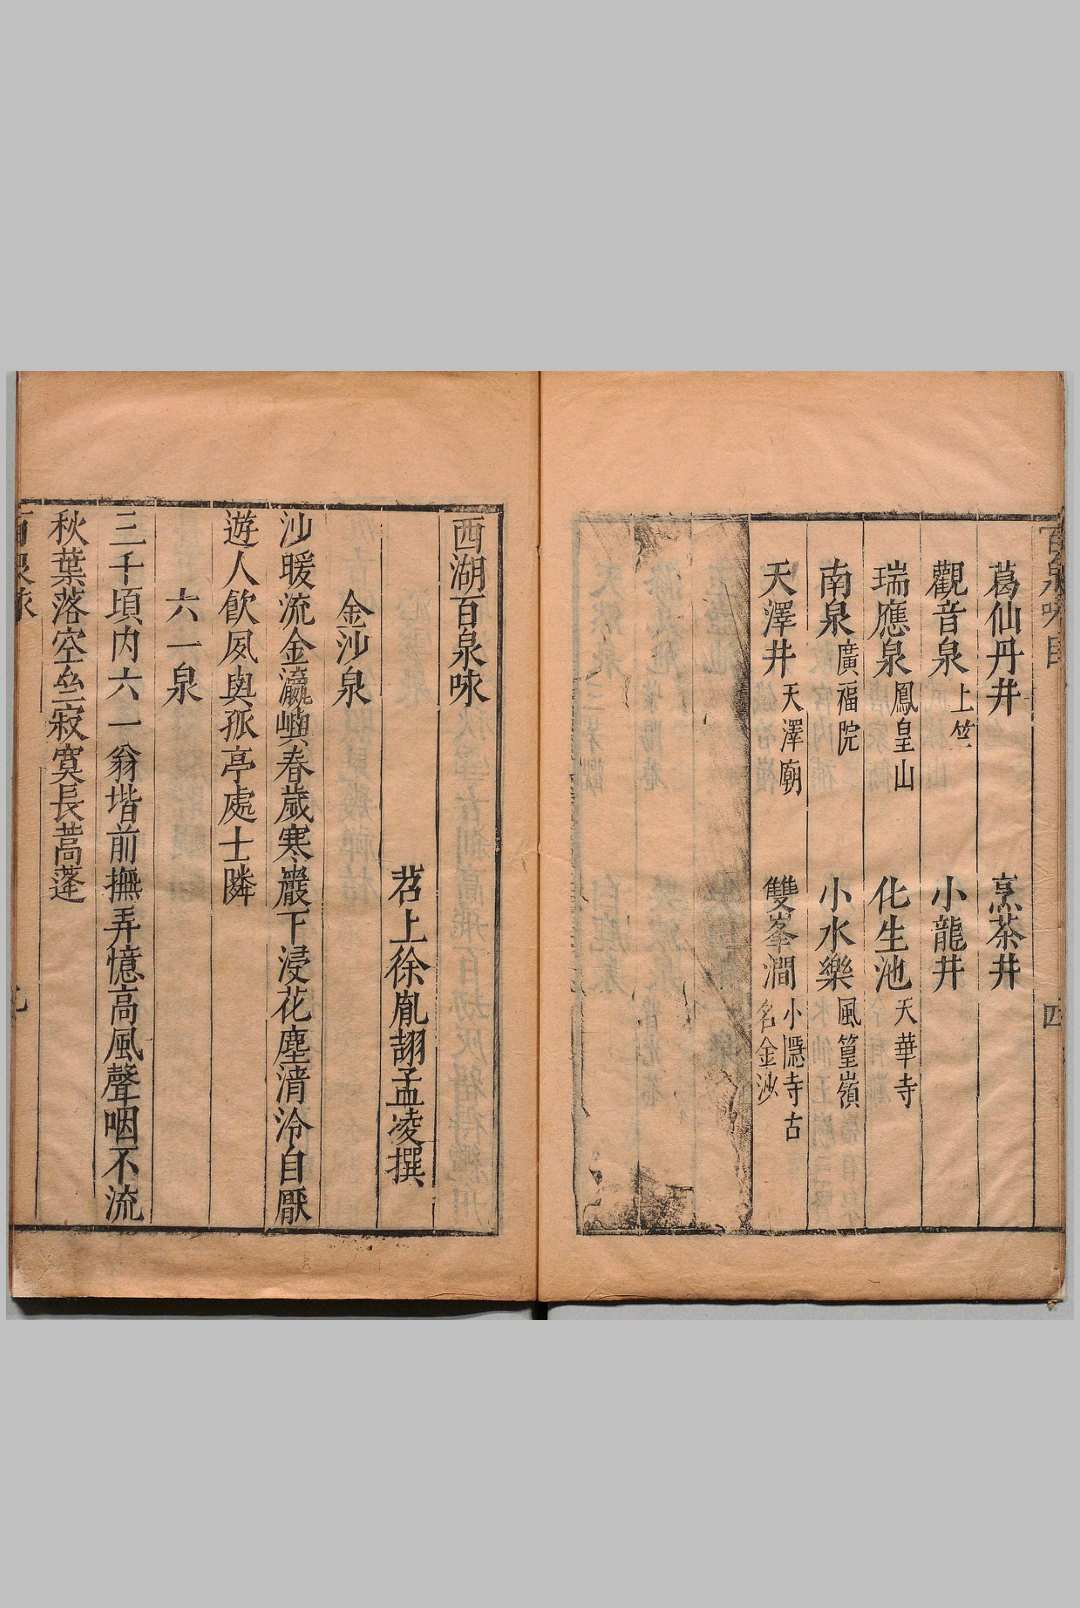 百泉咏目 四
葛仙丹井 烹茶井
觀音泉 上竺 小龍井
瑞應泉 鳳皇山 化生池 天華寺
南泉 廣福院 小水樂 風篁嶺
天澤井 天澤廟 雙峯澗 小隱寺古名金沙
西湖百泉咏
苕上徐胤翓孟凌撰
金沙泉
沙暖流金瀛嶼春歲寒巖下浸花塵清泠自厭
遊人飲夙與孤亭處士隣
六一泉
三千頃內六一翁堦前撫弄憶高風聲咽不流
秋葉落空坐寂寞長蒿蓬
百泉咏